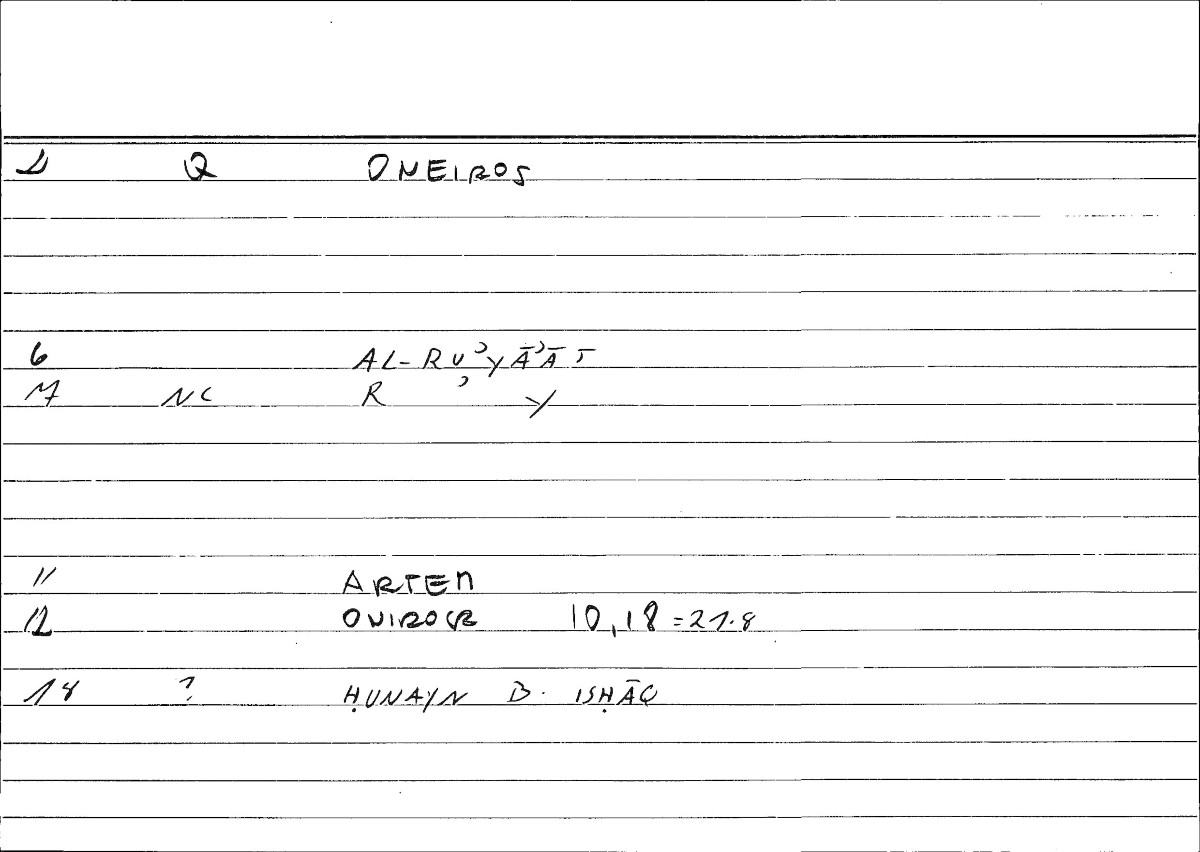 1 Q ONEIROS
6 AL-RUʾYĀʾĀT
7 NC R ʾ Y
11 ARTEM
12 ONIROCR 10,18 = 21.8
18 ? ḤUNAYN B. ISḤĀQ